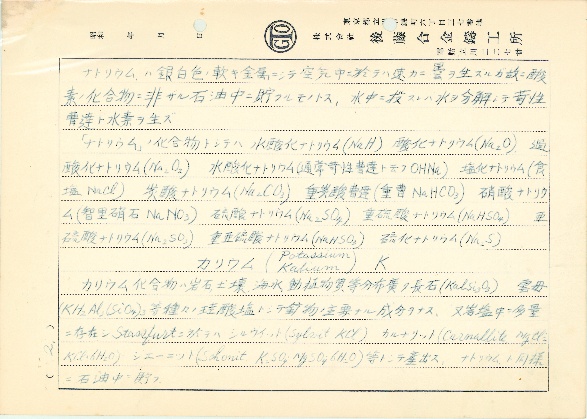 東京都立
昭和 年 月 日
GTO
株式会社 後藤合金鑄工所
ナトリウム、ハ銀白色ノ軟キ金属ニシテ空気中ニ於テハ速カニ曇ヲ生スルガ故ニ酸
素ノ化合物ニ非サル石油中ニ貯フルモノトス、水中ニ投スレハ水ヲ分解シテ苛性
曹達ト水素ヲ生ズ
「ナトリウム」ノ化合物トシテハ 水酸化ナトリウム(NaH) 酸化ナトリウム(Na2O) 過
酸化ナトリウム(Na2O2) 水酸化ナトリウム(通常苛性曹達トモ云フOHNa) 塩化ナトリウム(食
塩 NaCl) 炭酸ナトリウム(Na2CO3) 重炭酸曹達(重曹 NaHCO3) 硝酸ナトリウ
ム(智里硝石 NaNO3) 硫酸ナトリウム(Na2SO4) 重硫酸ナトリウム(NaHSO4) 亜
硫酸ナトリウム(Na2SO3) 重亜硫酸ナトリウム(NaHSO3) 硫化ナトリウム(Na2S)
カリウム (Potassium Kalium) K
カリウム化合物ハ岩石土壌海水動植物質等分布廣ク長石(KAlSi3O8) 雲母
等種々ノ珪酸塩トシテ鉱物ノ主要ナル成分ヲナス、又岩塩中ニ多量
ニ存在シ Stassfurt ニ於テハ シルヴィット(Sylvit KCl) カルナリット(Carnallite MgCl2
KCl 6H2O) シエーニット(Schönit K2SO4 MgSO4 6H2O)等トシテ産出ス、ナトリウムト同様
ニ石油中ニ貯フ
(2)